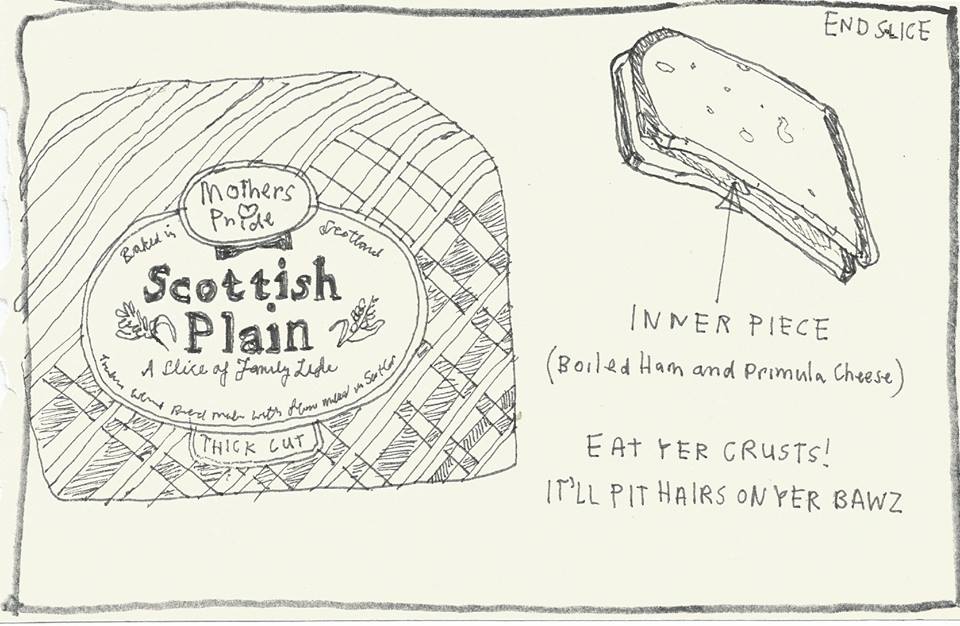 END SLICE
Mothers
Pride
Baked in
Scotland
Scottish
Plain
A Slice of Family Life
Bread made with flour milled in
THICK CUT
INNER PIECE
(Boiled Ham and Primula Cheese)
EAT YER CRUSTS!
IT'LL PIT HAIRS ON YER BAWZ